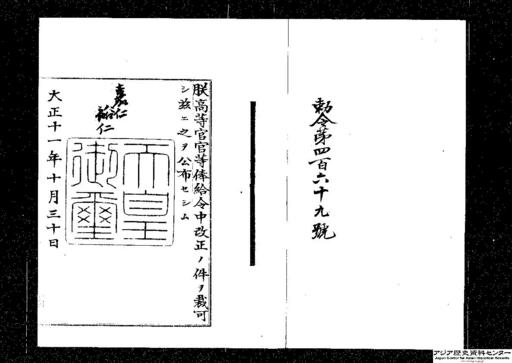 勅令第四百六十九號
朕高等官官等俸給令中改正ノ件ヲ裁可
シ玆ニ之ヲ公布セシム
嘉仁
裕仁
天皇
御璽
大正十一年十月三十日
アジア歴史資料センター
Japan Center for Asian Historical Records